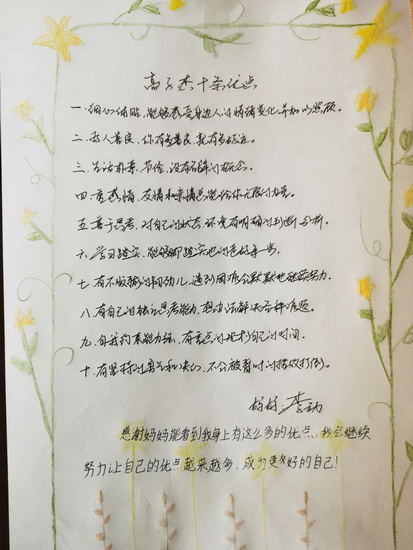 高子杰十条优点
一.细心体贴,能够感受身边人的情绪变化,并加以照顾。
二.对人善良,你有多善良,就有多好运。
三.生活朴素,节俭,没有攀比的概念。
四.重感情,友情和亲情总能给你无限的力量。
五.善于思考,对自己的状态,环境有明确的判断与分析。
六.学习踏实,能够脚踏实地的做好每一步。
七.有不服输的韧劲儿,遇到困难会默默地继续努力。
八.有自己的独立思考能力,想办法解决各种难题。
九.自我约束能力强,有意识的规划自己的时间。
十.有坚持的勇气和决心,不会被暂时的挫败打倒。
妈妈:李
感谢妈妈能看到我身上有这么多的优点,我会继续
努力让自己的优点越来越多,成为更好的自己!